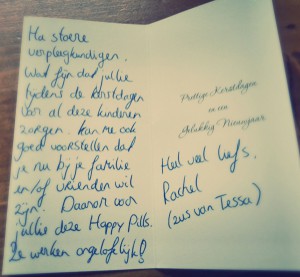 Ha stoere
verpleegkundigen,
Wat fijn dat jullie
tijdens de kerstdagen
voor al deze kinderen
zorgen. Kan me ook
goed voorstellen dat
je nu bij je familie
en/of vrienden wil
zijn. Daarom voor
jullie deze Happy Pills.
Ze werken ongelofelijk!
Prettige Kerstdagen
en een
Gelukkig Nieuwjaar
Heel veel liefs,
Rachel
(zus van Tessa)